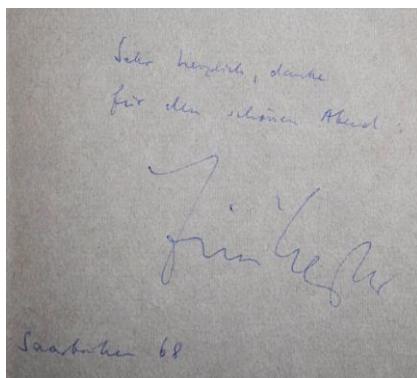 Sehr herzlich, danke
für den schönen Abend.
Saarbrücken 68